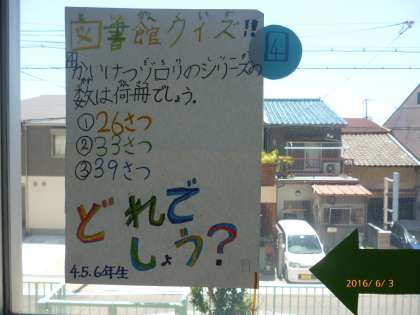 図書館クイズ!!
4
かいけつゾロリのシリーズの
数は何冊でしょう。
①26さつ
②33さつ
③39さつ
どれで
しょう?
4.5.6年生
2016/ 6/ 3